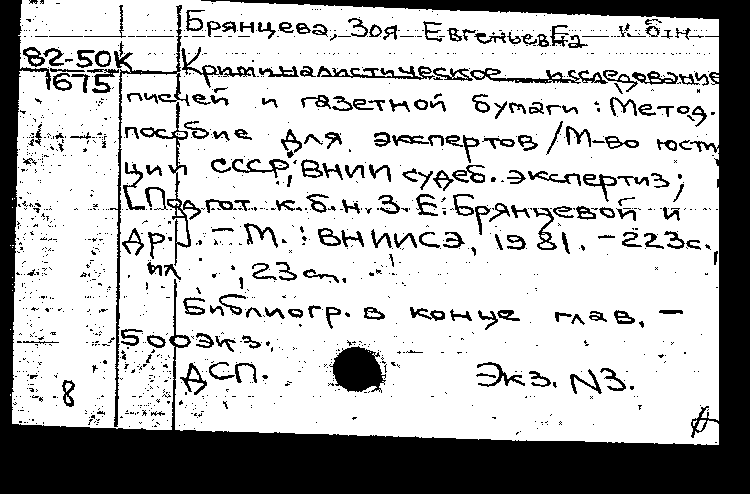 Брянцева, Зоя Евгеньевна к.б.н.
82-50К
1675
Криминалистическое исследование
писчей и газетной бумаги : Метод.
пособие для экспертов / М-во юсти
ции СССР, ВНИИ судеб. экспертиз;
[Подгот. к.б.н. З.Е. Брянцевой и
др.]. - М. : ВНИИСЭ, 1981. - 223с.,
ил. ; 23 см.
Библиогр. в конце глав. -
500 экз.
ДСП. Экз. N3.
8